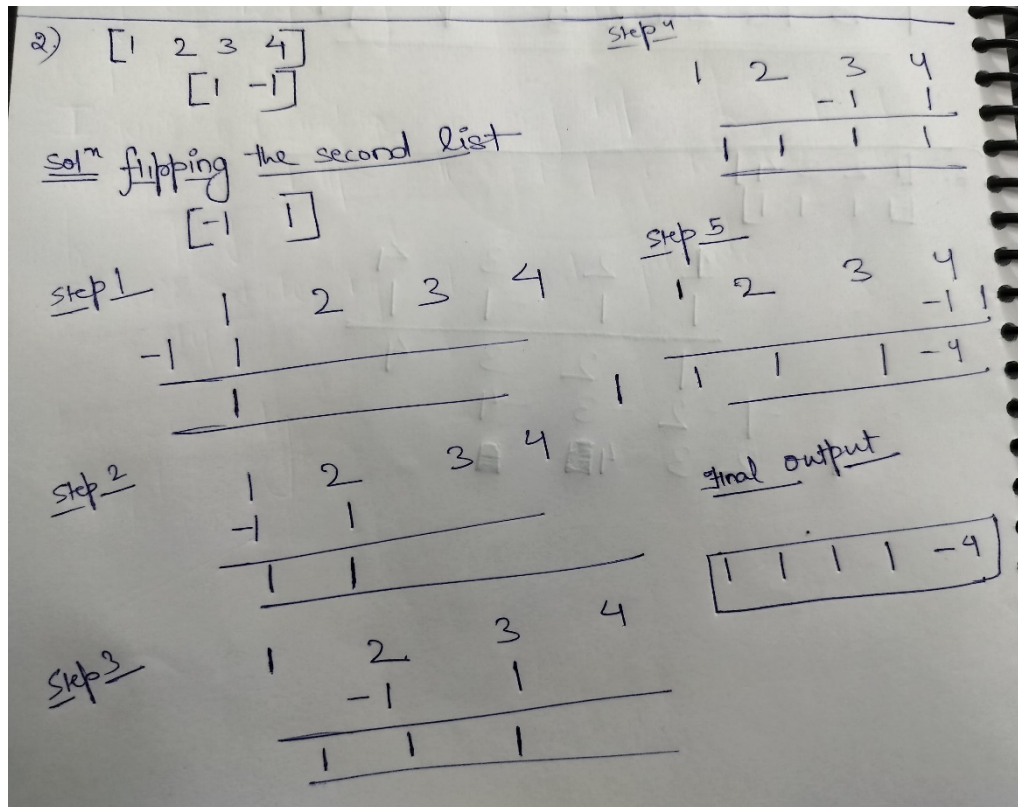 2) [1 2 3 4]
[1 -1]
Solⁿ flipping the second list
[-1 1]
Step 1
1 2 3 4
-1 1
1
Step 2
1 2 3 4
-1 1
1 1
Step 3
1 2 3 4
-1 1
1 1 1
Step 4
1 2 3 4
-1 1
1 1 1 1
Step 5
1 2 3 4
-1 1
1 1 1 1 -4
Final output
1 1 1 1 -4